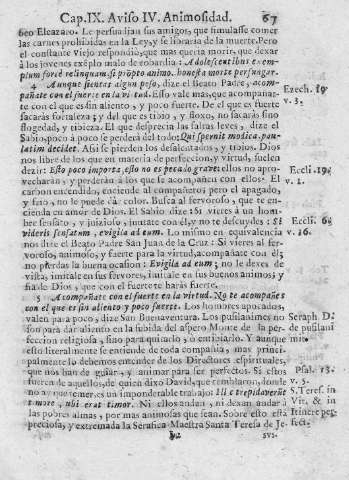 Cap. IX. Aviso IV. Animosidad. 67
beo Eleazaro. Le persuadian sus amigos, que simulasse comer
las carnes prohibidas en la Ley, y se libraria de la muerte. Pero
el constante Viejo respondiò, que mas queria morir, que dexar
à los jovenes exẽplo malo de cobardia: Adolescentibus exem-
plum forte relinquam, si prõpto animo, honesta morte perfungar.
4 Aunque sientas algun peso, dize el Beato Padre, acom-
pañate con el fuerte en la virtud. Esto vale mas, que acompañar-
te con el que es sin aliento, y poco fuerte. De el que es fuerte
sacaràs fortaleza; y del que es tibio, y floxo, no sacaràs sino
flogedad, y tibieza. El que desprecia las faltas leves, dize el
Sabio, poco à poco le perderà del todo: Qui spernit modica, pau-
latim decidet. Assi se pierden los desalentados, y tibios. Dios
nos libre de los que en materia de perfeccion, y virtud, suelen
dezir: Esto poco importa, esto no es pecado grave: ellos no apro-
vecharan, y perderàn à los que se acompañen con ellos. El
carbon encendido, enciende al compañero; pero el apagado,
y falto, no le puede dàr color. Busca al fervoroso, que te en-
cienda en amor de Dios. El Sabio dize: Si vieres à un hom-
bre sensato, y juizioso, juntate con èl, y no te descuydes: Si
videris sensatum, evigila ad eum. Lo mismo en equivalencia
nos dize el Beato Padre San Juan de la Cruz: Si vieres al fer-
voroso, animoso, y fuerte para la virtud, acompañate con èl;
no pierdas la buena ocasion: Evigila ad eum; no le dexes de
vista, imitale en sus fervores, imitale en sus buenos animos; y
fia de Dios, que con el fuerte te haràs fuerte.
5 Acompañate con el fuerte en la virtud. No te acompañes
con el que es sin aliento, y poco fuerte. Los hombres apocados,
valen para poco; dize San Buenaventura. Los pusilanimes no
son para dàr aliento en la subida del aspero Monte de la per-
feccion religiosa, sino para quitarlo, y o entibiarlo. Y aunque
esto literalmente se entiende de toda compañia, mas princi-
palmente lo debemos entender de los Directores espirituales,
que nos han de guiar, y animar para ser perfectos. Si estos
fueren de aquellos, de quien dixo David, que temblaron, donde
no avia que temer, es un imponderable trabajo: Illic trepidaverũt
timore, ubi erat timor. Ni ellos andan, ni dexan andar à
las pobres almas, por mas animosas que sean. Sobre esto està
preciosa, y extremada la Serafica Maestra Santa Teresa de Je-
sus.
v. 3.
v. 1.
Eccli. 6.
v. 16.
Seraph D.
de pusilani
mit.
Psal. 13.
v. 5.
S. Teres. in
Vit. & in
Itinere per-
fect.